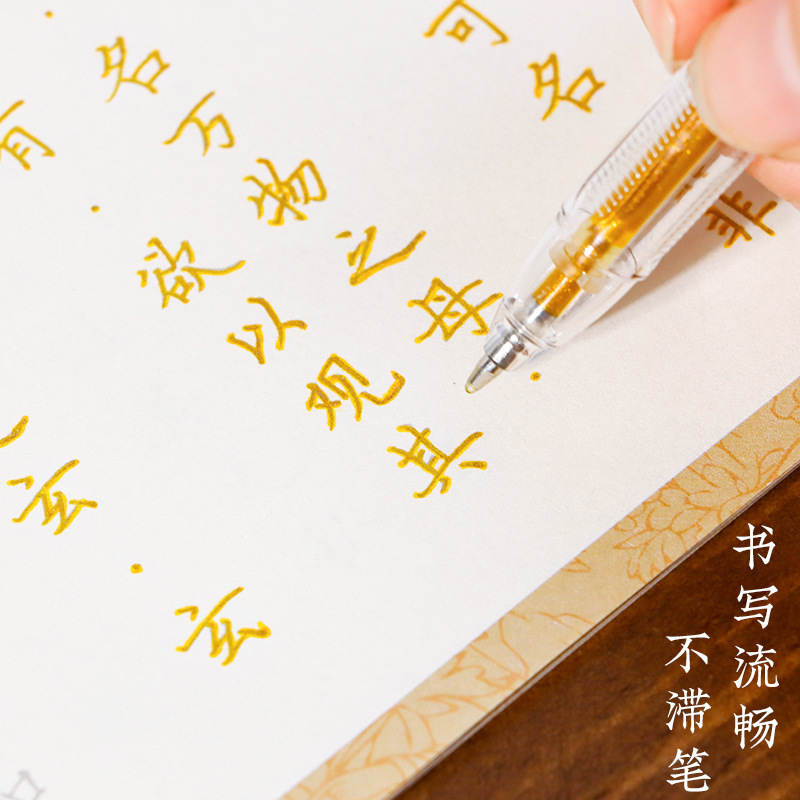 可名非
·名万物之母·
有·欲以观其
玄·玄
书写流畅
不滞笔